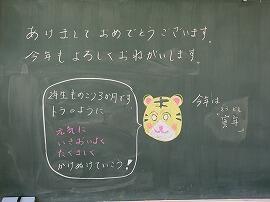 あけましておめでとうございます。
今年もよろしくおねがいします。
2年生ものこり3か月です
トラのように
元気に
いきおいよく
たくましく
かけぬけていこう!
今年は
とらどし
寅年